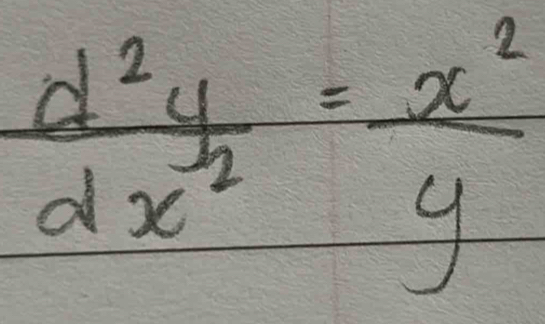 d²y/dx² = x²/y